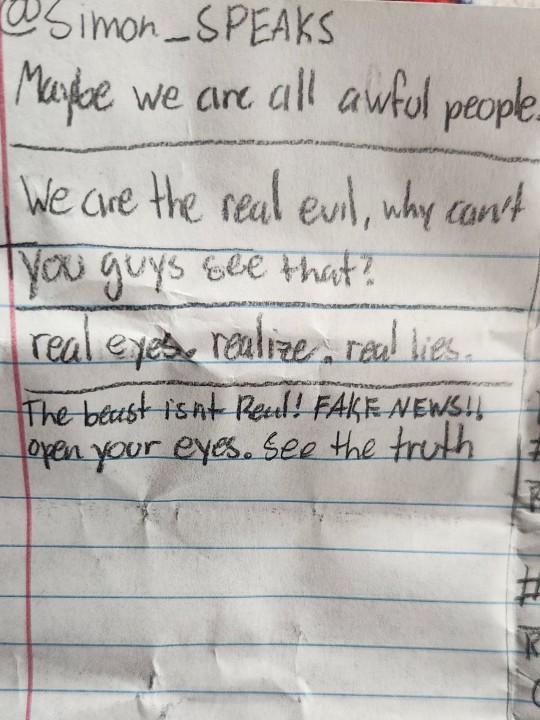 @Simon_SPEAKS
Maybe we are all awful people.
We are the real evil, why can't
you guys see that?
real eyes. realize. real lies.
The beast isnt Real! FAKE NEWS!!
open your eyes. see the truth
#
R
#
R